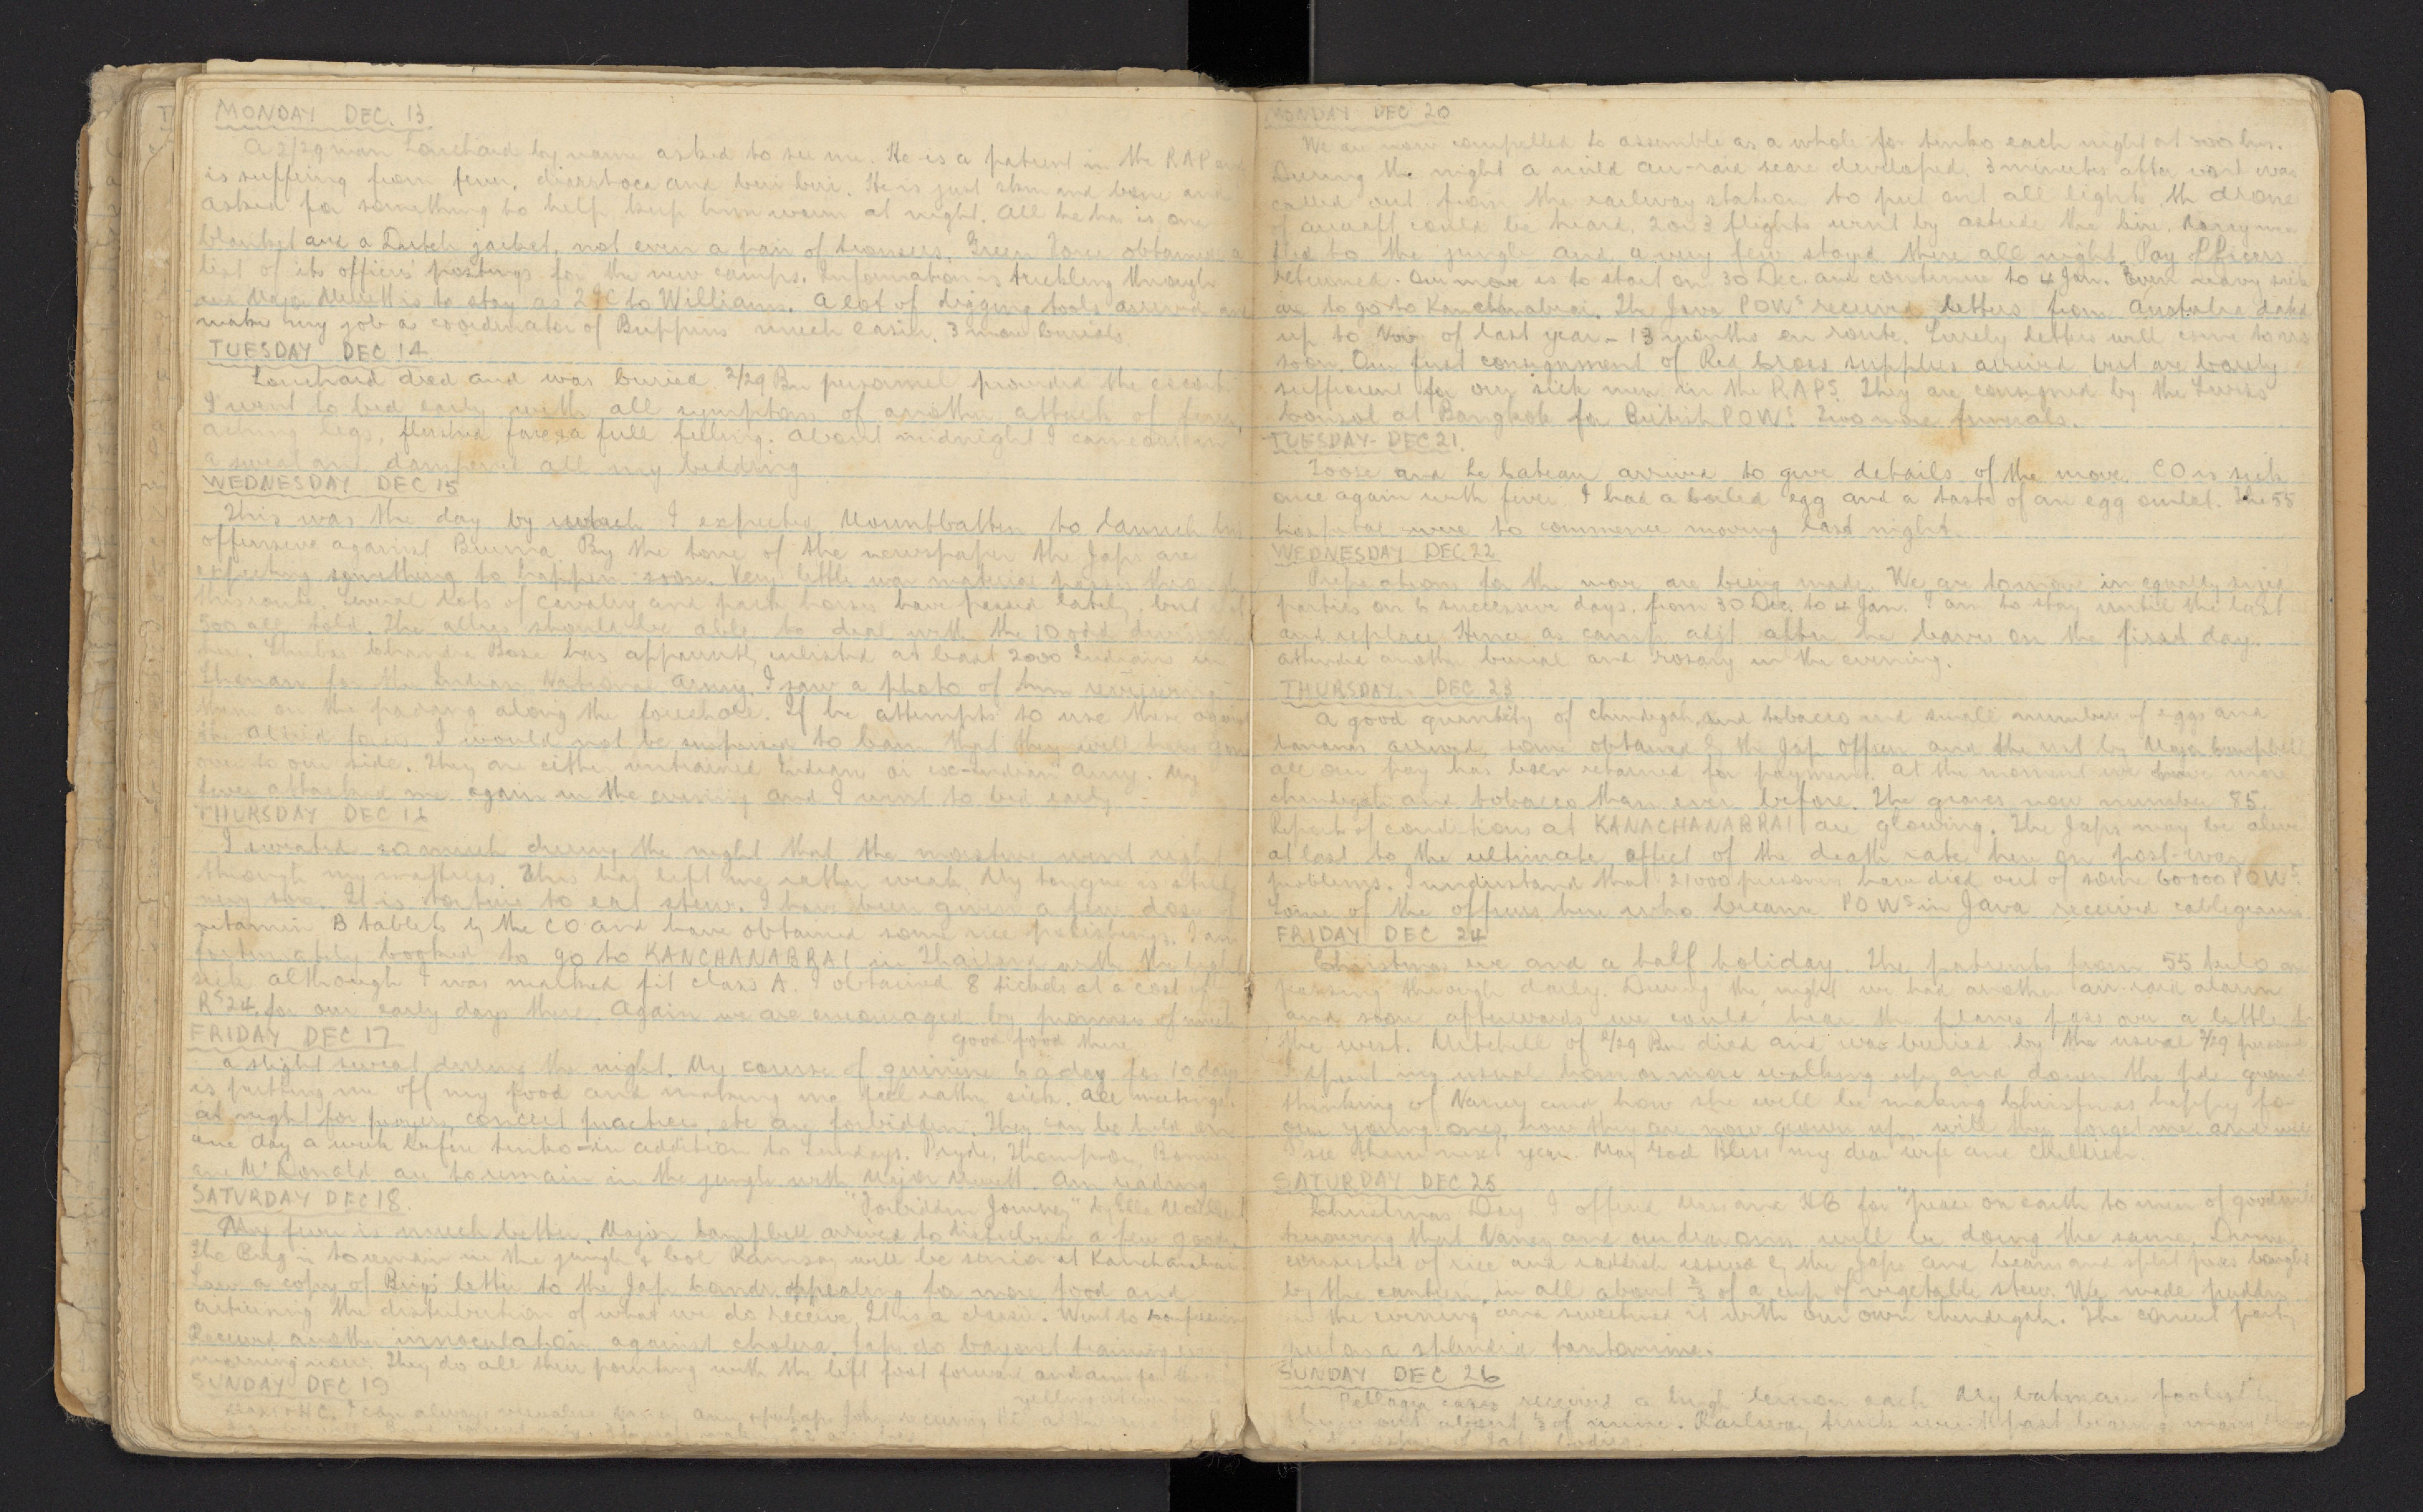 MONDAY DEC. 13
A 2/29 man Louchard by name asked to see me. He is a patient in the RAP and
is suffering from fever, diarrhoea and beri beri. He is just skin and bone and
asked for something to help keep him warm at night. All he has is one
blanket and a Dutch jacket, not even a pair of trousers. Green Force obtained a
list of its officers' postings for the new camps. Information is trickling through
Major Meiett is to stay as 2 i/c to Williams. A lot of digging tools arrived and
make my job as coordinator of Buffins much easier. 3 more burials
TUESDAY DEC 14
Louchard died and was buried. 2/29 Bn personnel provided the escort
I went to bed early with all symptoms of another attack of fever,
aching legs, flushed face & a full feeling. About midnight I came out in
a sweat and dampened all my bedding
WEDNESDAY DEC 15
This was the day by which I expected Mountbatten to launch his
offensive against Burma. By the tone of the newspaper the Japs are
expecting something to happen soon. Very little war material passes thro
this route. Several lots of cavalry and pack horses have passed lately, but
500 all told. The allies should be able to deal with the 10 odd divisions
here. Chandra Bose has apparently enlisted at least 2000 Indians in
Shonan for the Indian National Army. I saw a photo of him reviewing
them on the padang along the foreshore. If he attempts to use these against
the Allied forces I would not be surprised to learn that they will have gone
over to our side. They are either untrained Indians or ex-Indian Army. My
fever attacked me again in the evening and I went to bed early.
THURSDAY DEC 16
I sweated so much during the night that the moisture went right
through my mattress. This has left me rather weak. My tongue is still
very sore. It is torture to eat stew. I have been given a few doses of
vitamin B tablets by the CO and have obtained some rice polishings. I am
fortunately booked to go to KANCHANABRAI in Thailand with the light
sick although I was marked fit class A. I obtained 8 tickels at a cost of
Rs 24, for our early days there. Again we are encouraged by promises of much
good food there
FRIDAY DEC 17
A slight sweat during the night. My course of quinine 6 a day for 10 days
is putting me off my food and making me feel rather sick. All meetings
at night for prayers, concert practices, etc are forbidden. They can be held on
one day a week before tenko - in addition to Sundays. Pryde, Thompson, Bonner
and McDonald are to remain in the jungle with Major Meiett. Am reading
"Forbidden Journey" by Ella Maillart
SATURDAY DEC 18.
My fever is much better. Major Campbell arrived to distribute a few goods.
The Brig is to remain in the jungle & Col Ramsay will be senior at Kanchanabrai
Saw a copy of Brig's letter to the Jap Comdr appealing for more food and
criticising the distribution of what we do receive. It is a classic. Went to confession
Received another innoculation against cholera. Japs do bayonet training every
morning now. They do all their pointing with the left foot forward and aim for the
SUNDAY DEC 19
Mass & HC. I can always visualise
MONDAY DEC 20
We are now compelled to assemble as a whole for tenko each night at
During the night a mild air-raid scare developed. 3 minutes after word was
called out from the railway station to put out all lights, the drone
of aircraft could be heard. 2 or 3 flights went by astride the line. Many men
fled to the jungle and a very few stayed there all night. Pay Officers
returned. Our move is to start on 30 Dec. and continue to 4 Jan. Even heavy sick
are to go to Kanchanabrai. The Java POWs received letters from Australia dated
up to Nov of last year - 13 months en route. Surely letters will come to us
soon. Our first consignment of Red Cross supplies arrived but are barely
sufficient for our sick men in the RAPs. They are consigned by the Swiss
Consul at Bangkok for British POWs. Two more funerals.
TUESDAY - DEC 21.
Toose and Le Bateau arrived to give details of the move. CO is sick
once again with fever. I had a boiled egg and a taste of an egg omlet. The 55
hospital were to commence moving last night.
WEDNESDAY DEC 22
Preparations for the move are being made. We are to move in equally sized
parties on 6 successive days, from 30 Dec. to 4 Jan. I am to stay until the last
and replace Hence as camp adjt after he leaves on the first day.
Attended another burial and rosary in the evening.
THURSDAY - DEC 23
A good quantity of chindegah and tobacco and small number of eggs and
bananas arrived, some obtained by the Jap Officer and the rest by Major Campbell
All our pay has been returned for payment. At the moment we have more
chindegah and tobacco than ever before. The graves now number 85.
Reports of conditions at KANACHANABRAI are glowing. The Japs may be alive
at last to the ultimate effect of the death rate here on post-war
problems. I understand that 21000 persons have died out of some 60 000 POWs.
Some of the officers here who became POWs in Java received cablegrams
FRIDAY DEC 24
Christmas eve and a half holiday. The patients from 55 kilo are
passing through daily. During the night we had another air-raid alarm
and soon afterwards we could hear the planes pass over a little to
the west. Mitchell of 2/29 Bn died and was buried by the usual 2/29 personnel
I spent my usual hour or more walking up and down the pde ground
thinking of Nancy and how she will be making Christmas happy for
our young ones, how they are now grown up, will they forget me and will
I see them next year. May God Bless my dear wife and children.
SATURDAY DEC 25
Christmas Day. I offered Mass and HC for "peace on earth to men of goodwill
knowing that Nancy and our dear ones will be doing the same. Dinner
consisted of rice and raddish issued by the Japs and beans and split peas bought
by the canteen, in all about 2/3 of a cup of vegetable stew. We made pudding
in the evening and sweetened it with our own chindegah. The concert party
put on a splendid pantomime.
SUNDAY DEC 26
Pellagra cases received a lemon each. My batman foolishly
threw out about 1/2 of mine. Railway trucks